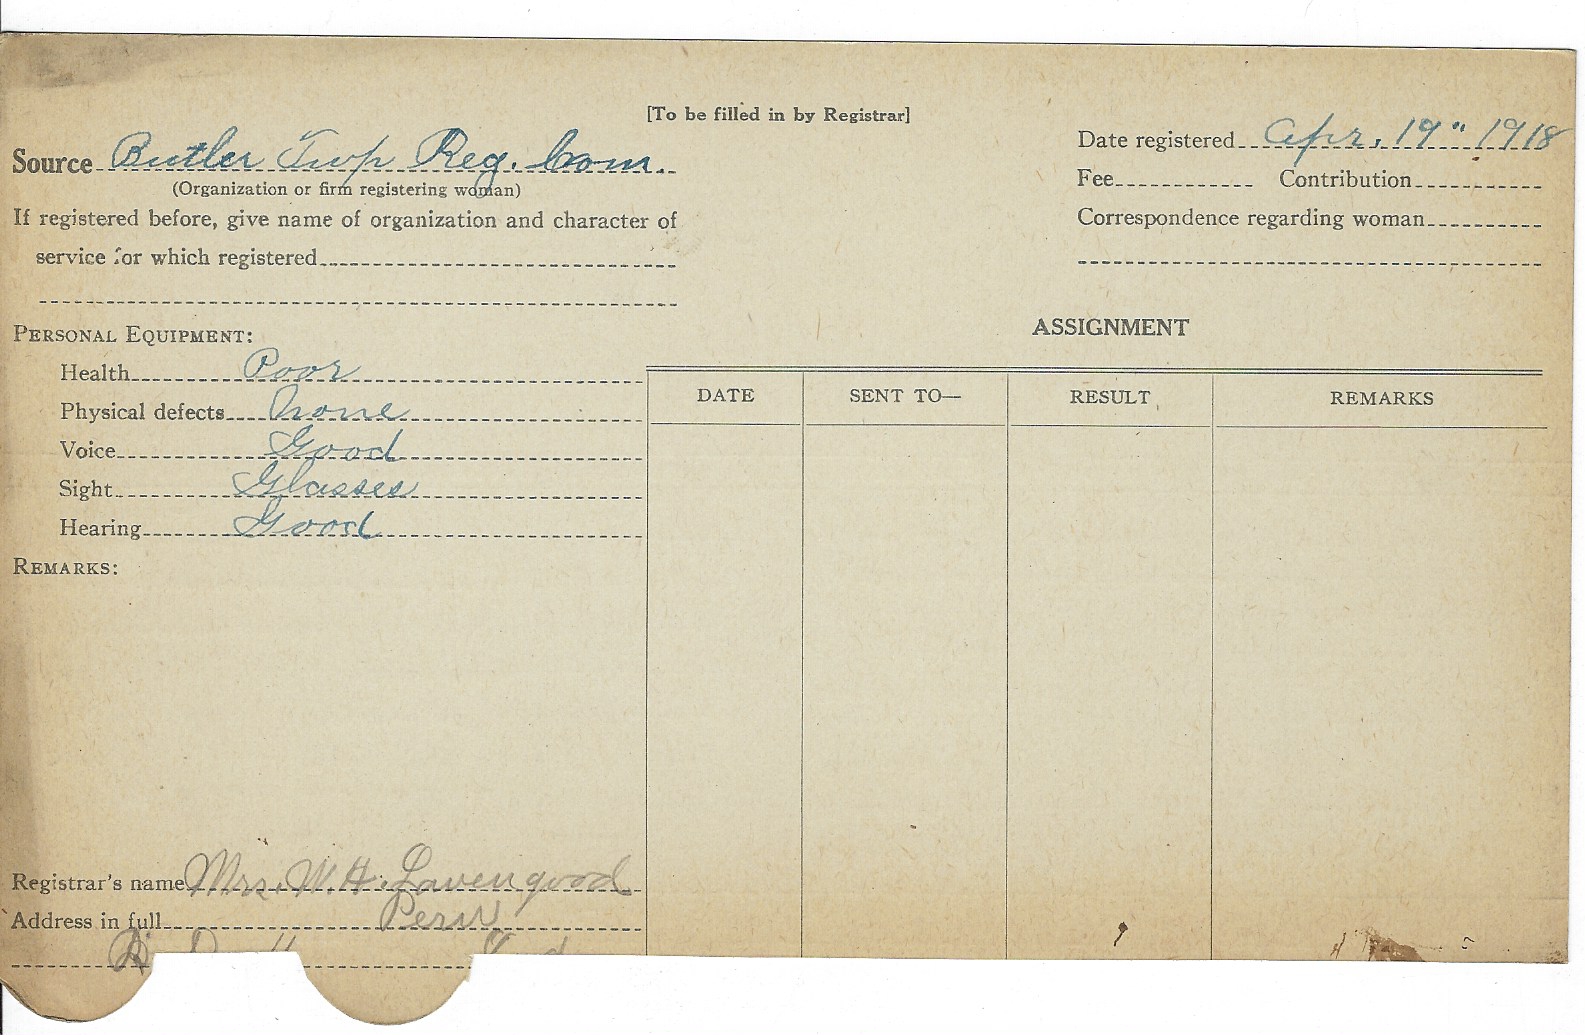 [To be filled in by Registrar]
Source Butler Twp Reg. Com.
(Organization or firm registering woman)
If registered before, give name of organization and character of
service for which registered
Date registered Apr. 19" 1918
Fee Contribution
Correspondence regarding woman
PERSONAL EQUIPMENT:
Health Poor
Physical defects None
Voice Good
Sight Glasses
Hearing Good
REMARKS:
ASSIGNMENT
DATE SENT TO— RESULT REMARKS
Registrar's name Mrs. W. H. Lavengood
Address in full Peru
Ind